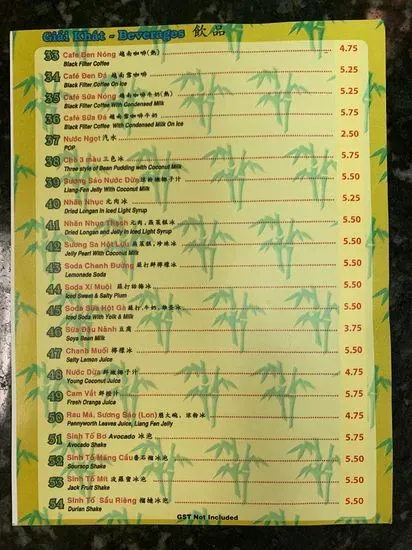 Giải Khát - Beverages 飲品
33 Café Đen Nóng 越南咖啡(熱) 4.75
Black Filter Coffee
34 Café Đen Đá 越南雪咖啡 5.25
Black Filter Coffee On Ice
35 Café Sữa Nóng 越南咖啡牛奶(熱) 5.25
Black Filter Coffee With Condensed Milk
36 Café Sữa Đá 越南雪咖啡牛奶 5.75
Black Filter Coffee With Condensed Milk On Ice
37 Nước Ngọt 汽水 2.50
POP
38 Chè 3 màu 三色冰 5.75
Three style of Bean Pudding with Coconut Milk
39 Sương Sáo Nước Dừa 涼粉椰子汁 5.50
Liang-Fen Jelly With Coconut Milk
40 Nhãn Nhục 元肉冰 5.25
Dried Longan in Iced Light Syrup
41 Nhãn Nhục Thạch 元肉,燕菜糕冰 5.50
Dried Longan and Jelly in Iced Light Syrup
42 Sương Sa Hột Lựu 燕菜糕,珍珠冰 5.50
Jelly Pearl With Coconut Milk
43 Soda Chanh Đường 蘇打鮮檸檬冰 5.50
Lemonade Soda
44 Soda Xí Muội 蘇打話梅冰 5.50
Iced Sweet & Salty Plum
45 Soda Sữa Hột Gà 蘇打,牛奶,雞蛋冰 5.50
Iced Soda With Yolk & Milk
46 Sữa Đậu Nành 豆腐 3.75
Soya Bean Milk
47 Chanh Muối 檸檬冰 5.50
Salty Lemon Juice
48 Nước Dừa 鮮椰子汁 5.50
Young Coconut Juice
49 Cam Vắt 鮮橙汁 5.75
Fresh Oranga Juice
50 Rau Má, Sương Sáo (Lon) 崩大碗, 涼粉冰 4.75
Pennyworth Leaves Juice, Liang Fen Jelly
51 Sinh Tố Bơ Avocado 冰泡 5.75
Avocado Shake
52 Sinh Tố Mãng Cầu 番石榴冰泡 5.50
Soursop Shake
53 Sinh Tố Mít 波羅蜜冰泡 5.50
Jack Fruit Shake
54 Sinh Tố Sầu Riêng 榴槤冰泡 5.50
Durian Shake
GST Not Included